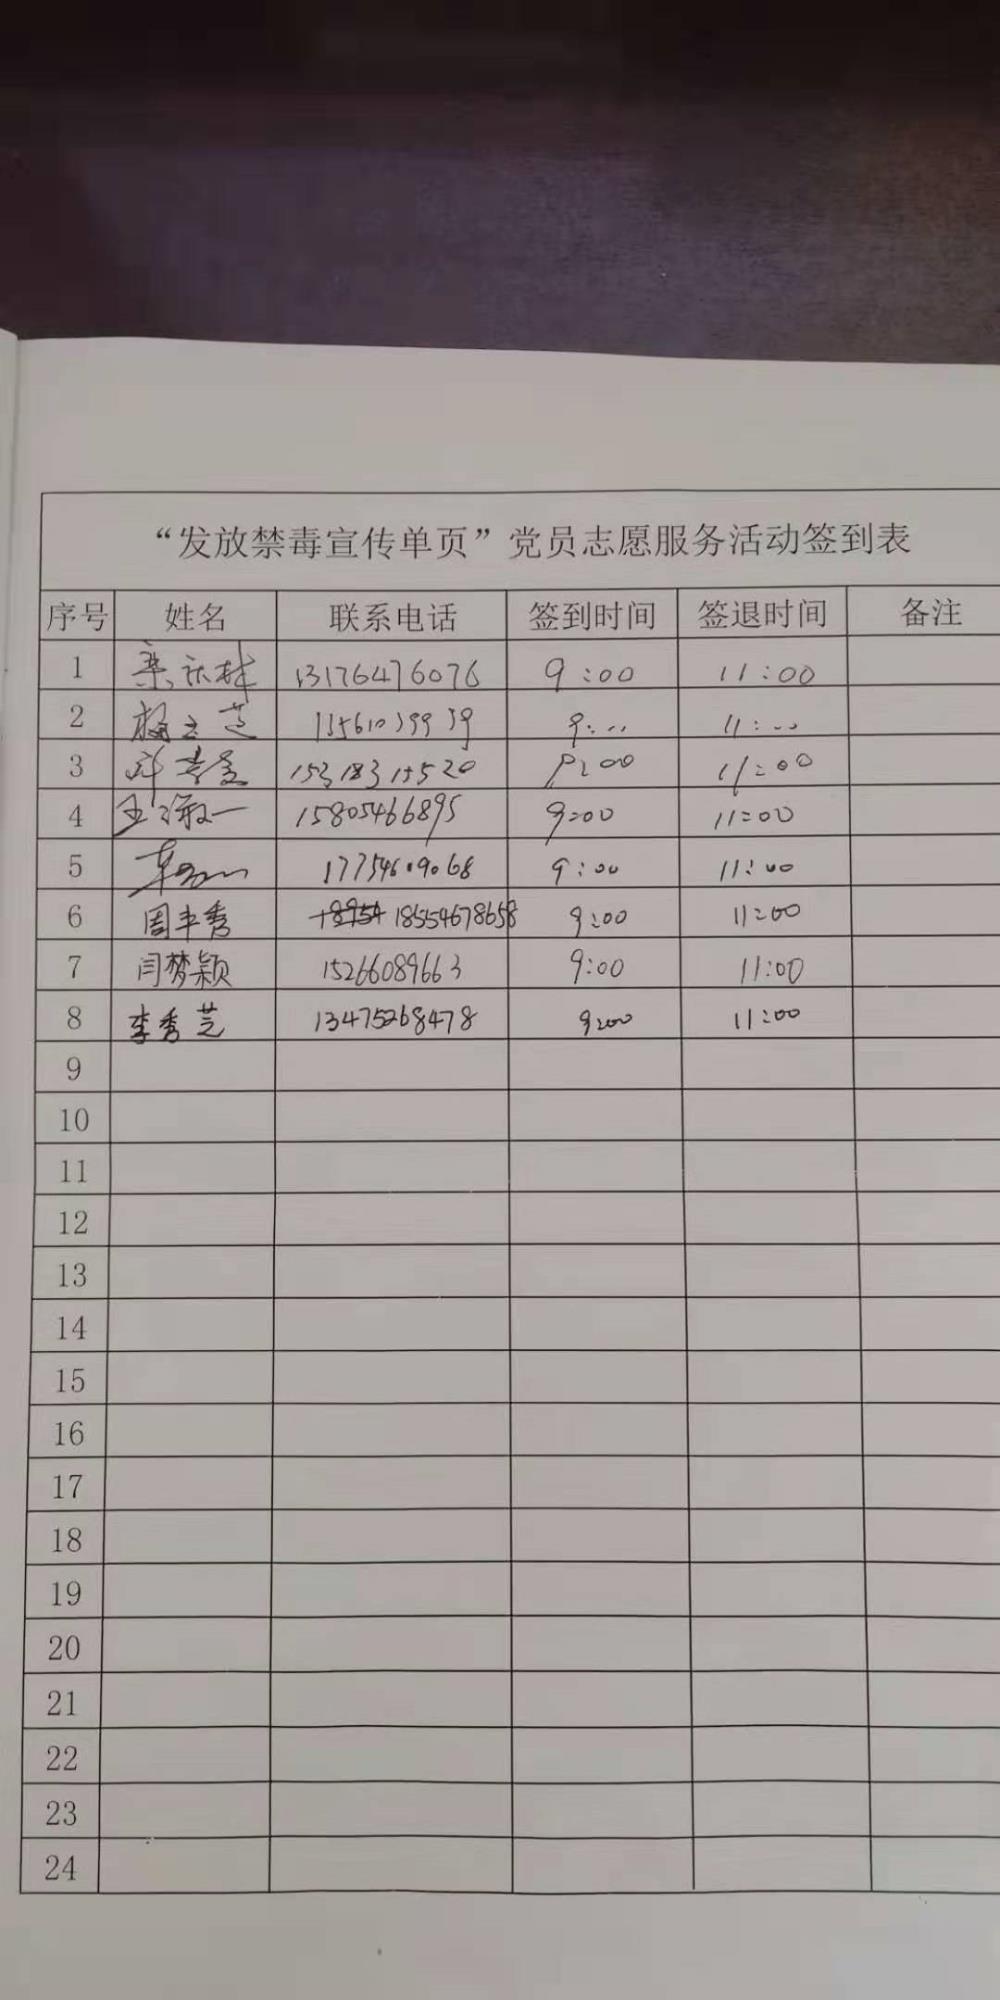 “发放禁毒宣传单页”党员志愿服务活动签到表
序号 姓名 联系电话 签到时间 签退时间 备注
1 栾庆林 13176476076 9:00 11:00
2 杨立芝 11561039939 9:.. 11:..
3 15318315520 9:00 11:00
4 王海一 15805466895 9:00 11:00
5 17754609068 9:00 11:00
6 周丰秀 18954 18554678658 9:00 11:00
7 闫梦颖 15266089663 9:00 11:00
8 李秀芝 13475268478 9:00 11:00
9
10
11
12
13
14
15
16
17
18
19
20
21
22
23
24